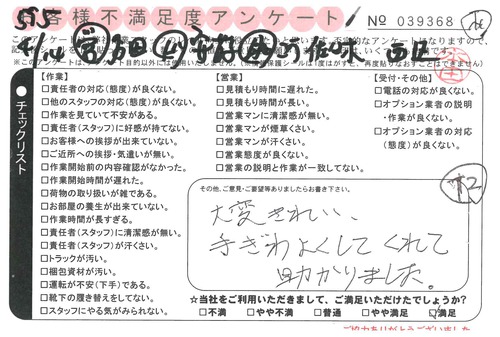 お客様不満足度アンケート
№ 039368
※このアンケートは、アンケート目的以外には使用いたしません。
チェックリスト
【作業】
□責任者の対応(態度)が良くない。
□他のスタッフの対応(態度)が良くない。
□作業を見ていて不安がある。
□責任者(スタッフ)に好感が持てない。
□お客様への挨拶が出来ていない。
□ご近所への挨拶・気遣いが無い。
□作業開始前の内容確認がなかった。
□作業開始時間が遅れた。
□荷物の取り扱いが雑である。
□お部屋の養生が出来ていない。
□作業時間が長すぎる。
□責任者(スタッフ)に清潔感が無い。
□責任者(スタッフ)が汗くさい。
□トラックが汚い。
□梱包資材が汚い。
□運転が不安(下手)である。
□靴下の履き替えをしてない。
□スタッフにやる気がみられない。
【営業】
□見積もり時間に遅れた。
□見積もり時間が長い。
□営業マンに清潔感が無い。
□営業マンが煙草くさい。
□営業マンが汗くさい。
□営業態度が良くない。
□営業の説明と作業が一致してない。
【受付・その他】
□電話の対応が良くない。
□オプション業者の説明
・作業が良くない。
□オプション業者の対応
(態度)が良くない。
その他、ご意見・ご要望等ありましたらお書き下さい。
大変きれいい、
手ぎわよくしてくれて
助かりました。
☆当社をご利用いただきまして、ご満足いただけたでしょうか?
□不満 □やや不満 □普通 □やや満足 □満足
ご協力ありがとうございました